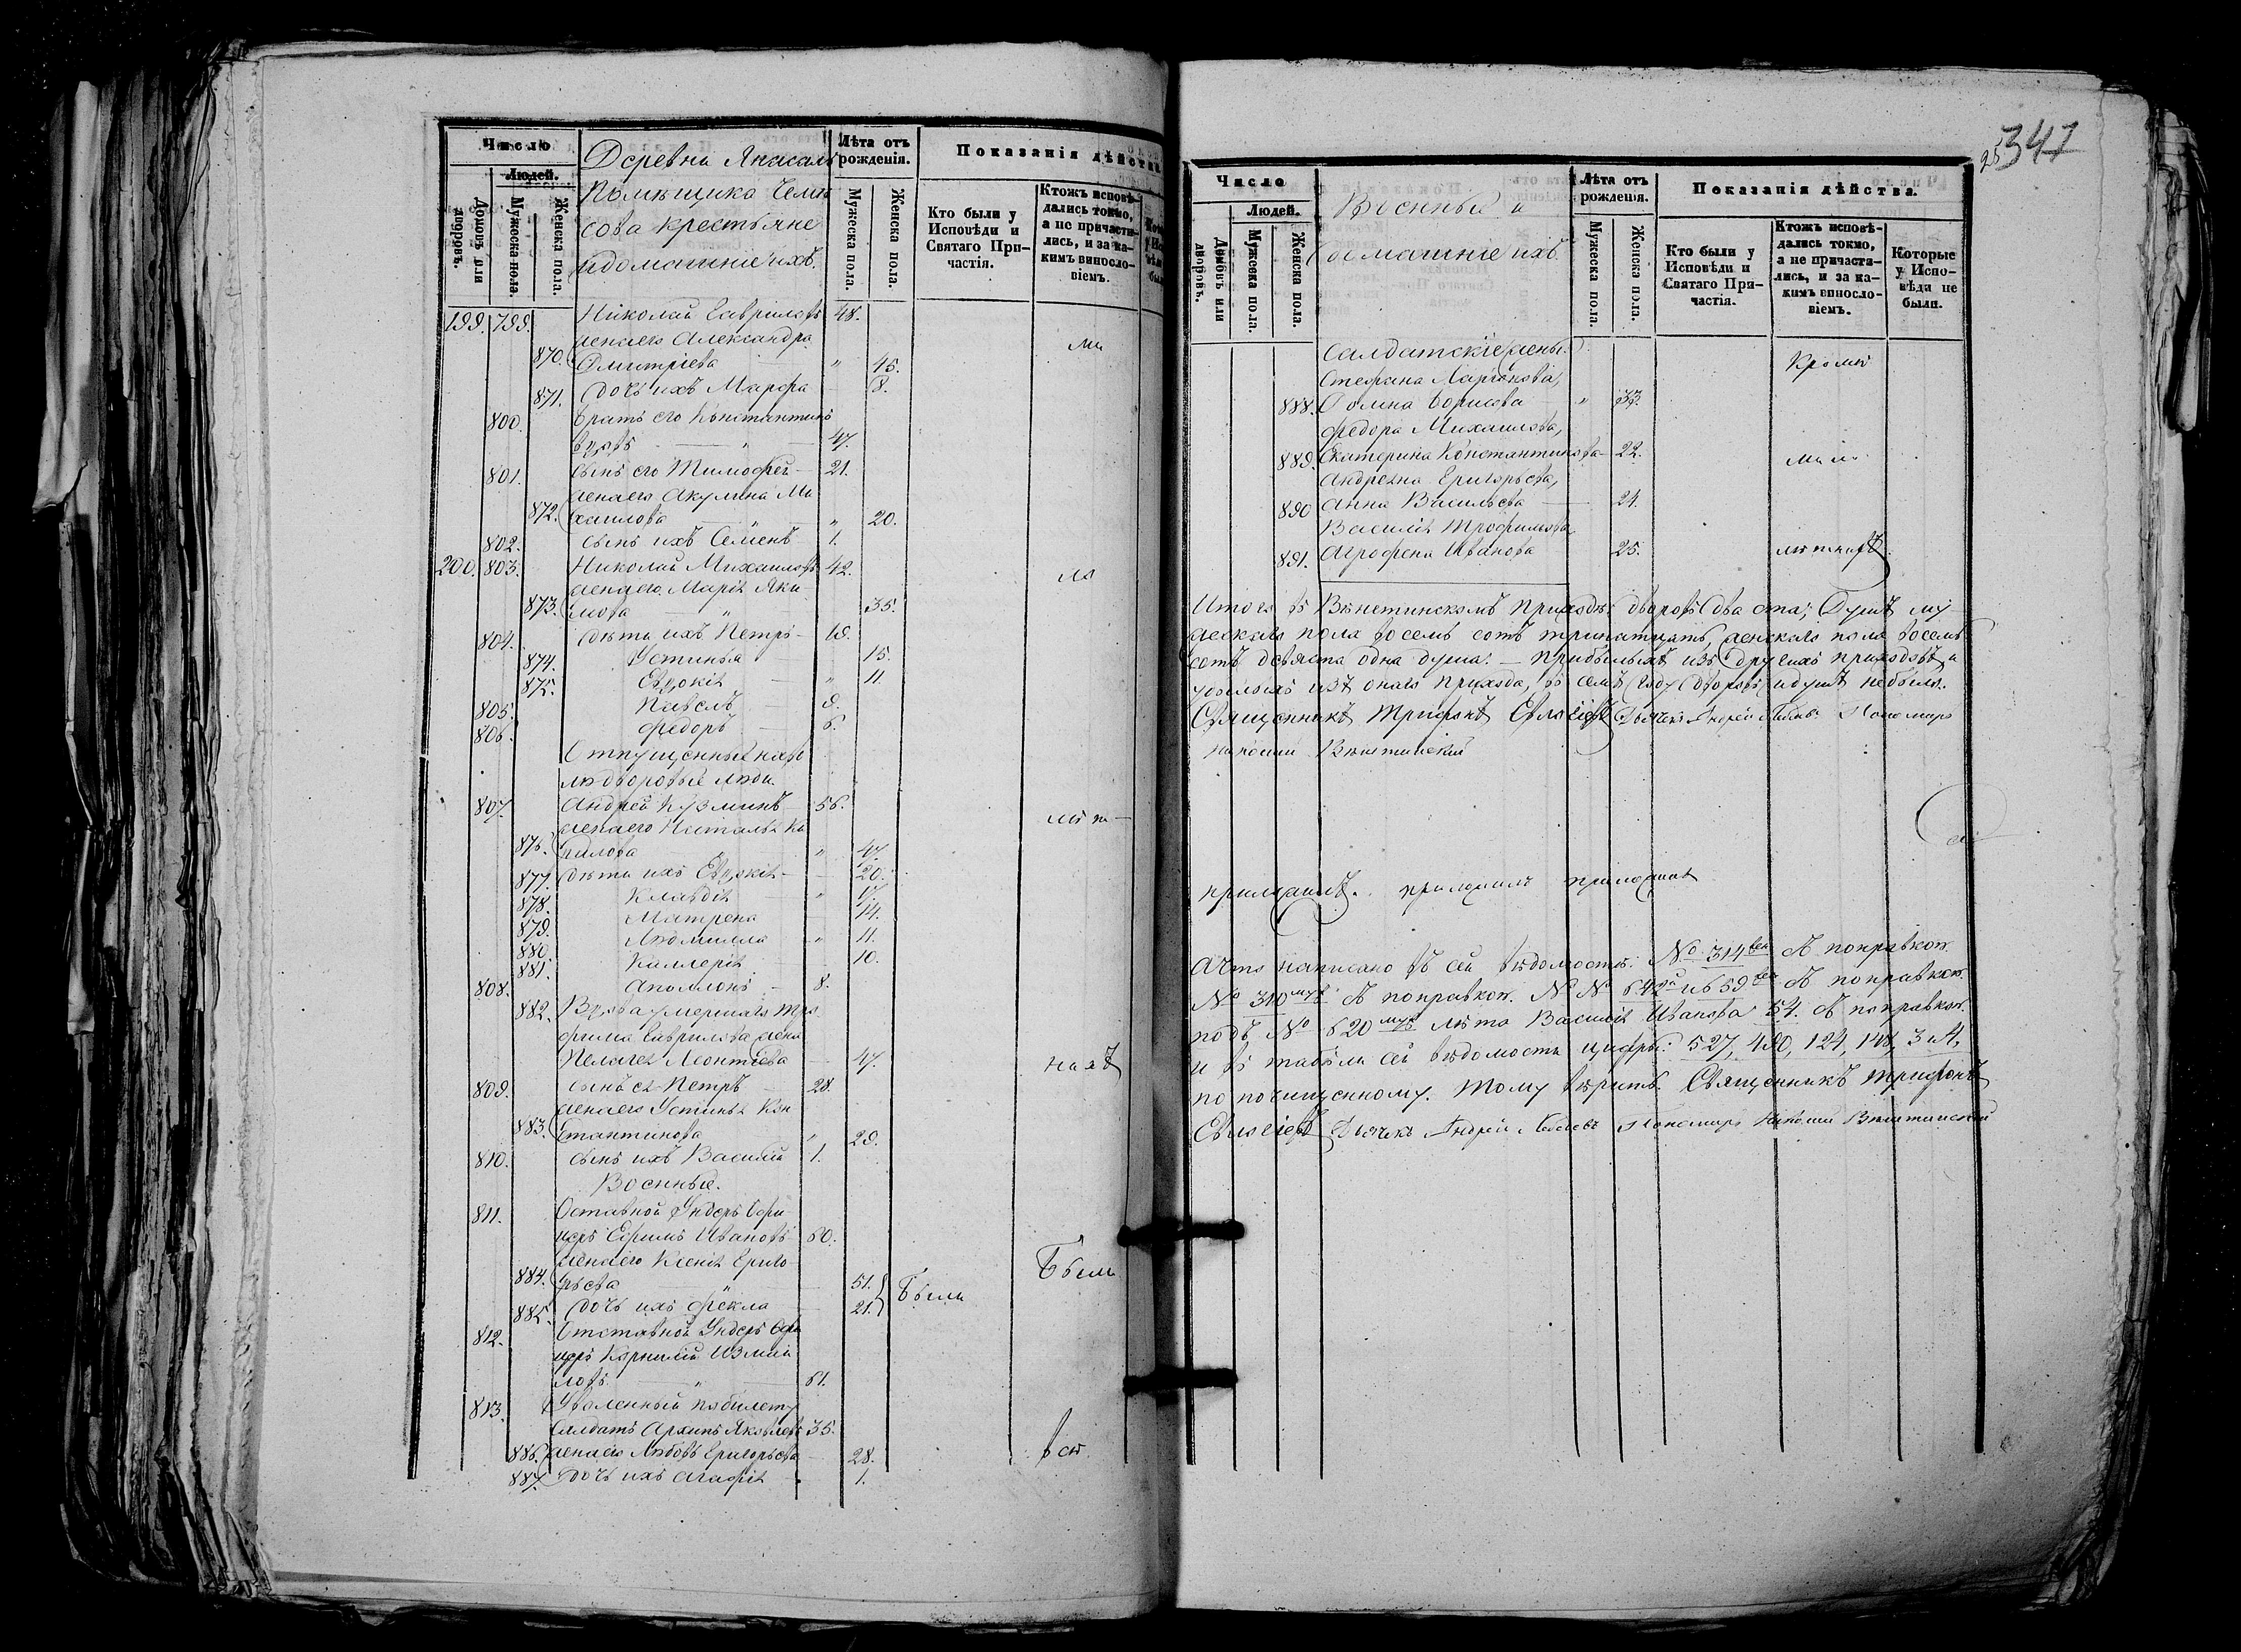 Число
Людей.
Домовъ или дворовъ.
Мужеска пола.
Женска пола.
Деревни
Помѣщика
сова крестьяне
и домашніе ихъ.
Лѣта отъ рожденія.
Мужеска пола.
Женска пола.
Показанія дѣйства
Кто были у Исповѣди и Святаго Причастія.
Ктожъ исповѣдались токмо, а не причастились, и за какимъ винословіемъ.
199. 799. Николай Гавриловъ 48.
жена его Александра
870. Дмитріева " 45.
871. дочь ихъ Марфа 8.
800. братъ его Константинъ
вдовъ " 47.
801. сынъ его Тимофей 21.
жена его Акулина Ми
872. хаилова " 20.
802. сынъ ихъ Семенъ 1.
200. 803. Николай Михаиловъ 42.
жена его Марія Яки
873. мова " 35.
804. дѣти ихъ Петръ 19.
874. Устинья 15.
875. Евдокія " 11.
805. Павелъ 9.
806. Федоръ 6.
Отпущенные на во
лю дворовые люди.
807. Андрей Кузминъ 56.
жена его Наталья Ки
876. рилова " 47.
877. дѣти ихъ Евдокія 20.
878. Клавдія " 17.
879. Матрена 14.
880. Людмилла " 11.
881. Каллерія 10.
808. Аполлонъ 8.
882. Вдова умершаго Тро
фима Гаврилова жена
Пелагея Леонтіева 47.
809. сынъ ея Петръ 28.
жена его Устинья Кон
883. стантинова " 29.
810. сынъ ихъ Василій 1.
Военные.
811. Оставной Ундеръ Офи
церъ Ефимъ Ивановъ 60.
жена его Ксенія Григо
884. рьева " 51. Были
885. дочь ихъ Фекла 21.
Были
812. Отставной Ундеръ Офи
церъ Корнилій Измаи
ловъ " 61.
813. Уволенный по билету
солдатъ Архипъ Яковлевъ 35.
886. жена его Любовь Григорьева 28.
887. дочь ихъ Агафія 1.
всѣ
347
Число
Людей.
Домовъ или дворовъ.
Мужеска пола.
Женска пола.
Военные и
домашніе ихъ.
Лѣта отъ рожденія.
Мужеска пола.
Женска пола.
Показанія дѣйства.
Кто были у Исповѣди и Святаго Причастія.
Ктожъ исповѣдались токмо, а не причастились, и за какимъ винословіемъ.
Которые у Исповѣди не были.
Салдатскіе жены:
Стефана Ларіонова, Кромѣ
888. Домна Борисова " 33.
Федора Михаилова,
889. Екатерина Константинова 22.
Андреяна Григорьева,
890 Анна Васильева 24.
Василія Трофимова
891. Агрофена Иванова 25.
Итого въ приходѣ дворовъ два ста; Душъ му
жескаго пола восемь сотъ тринатцать, женскаго пола восемь
сотъ девяноста одна душа. — Прибылыхъ изъ другихъ приходовъ и
убылыхъ изъ онаго прихода, въ семъ году дворовъ и душъ небыло.
Священникъ Трифонъ Дьячекъ Андрей Пономарь
А что написано въ сей вѣдомости: № 314 съ поправкою.
№ 310 съ поправкою. №№ 642 и 659 съ поправкою.
подъ № 620 лѣта Василія Иванова 54. съ поправкою.
и въ табели сей вѣдомости цифры: 527, 490, 124, 148, 3 и 4,
по почищенному. Тому вѣрить. Священникъ Трифонъ
Дьячекъ Андрей Пономарь